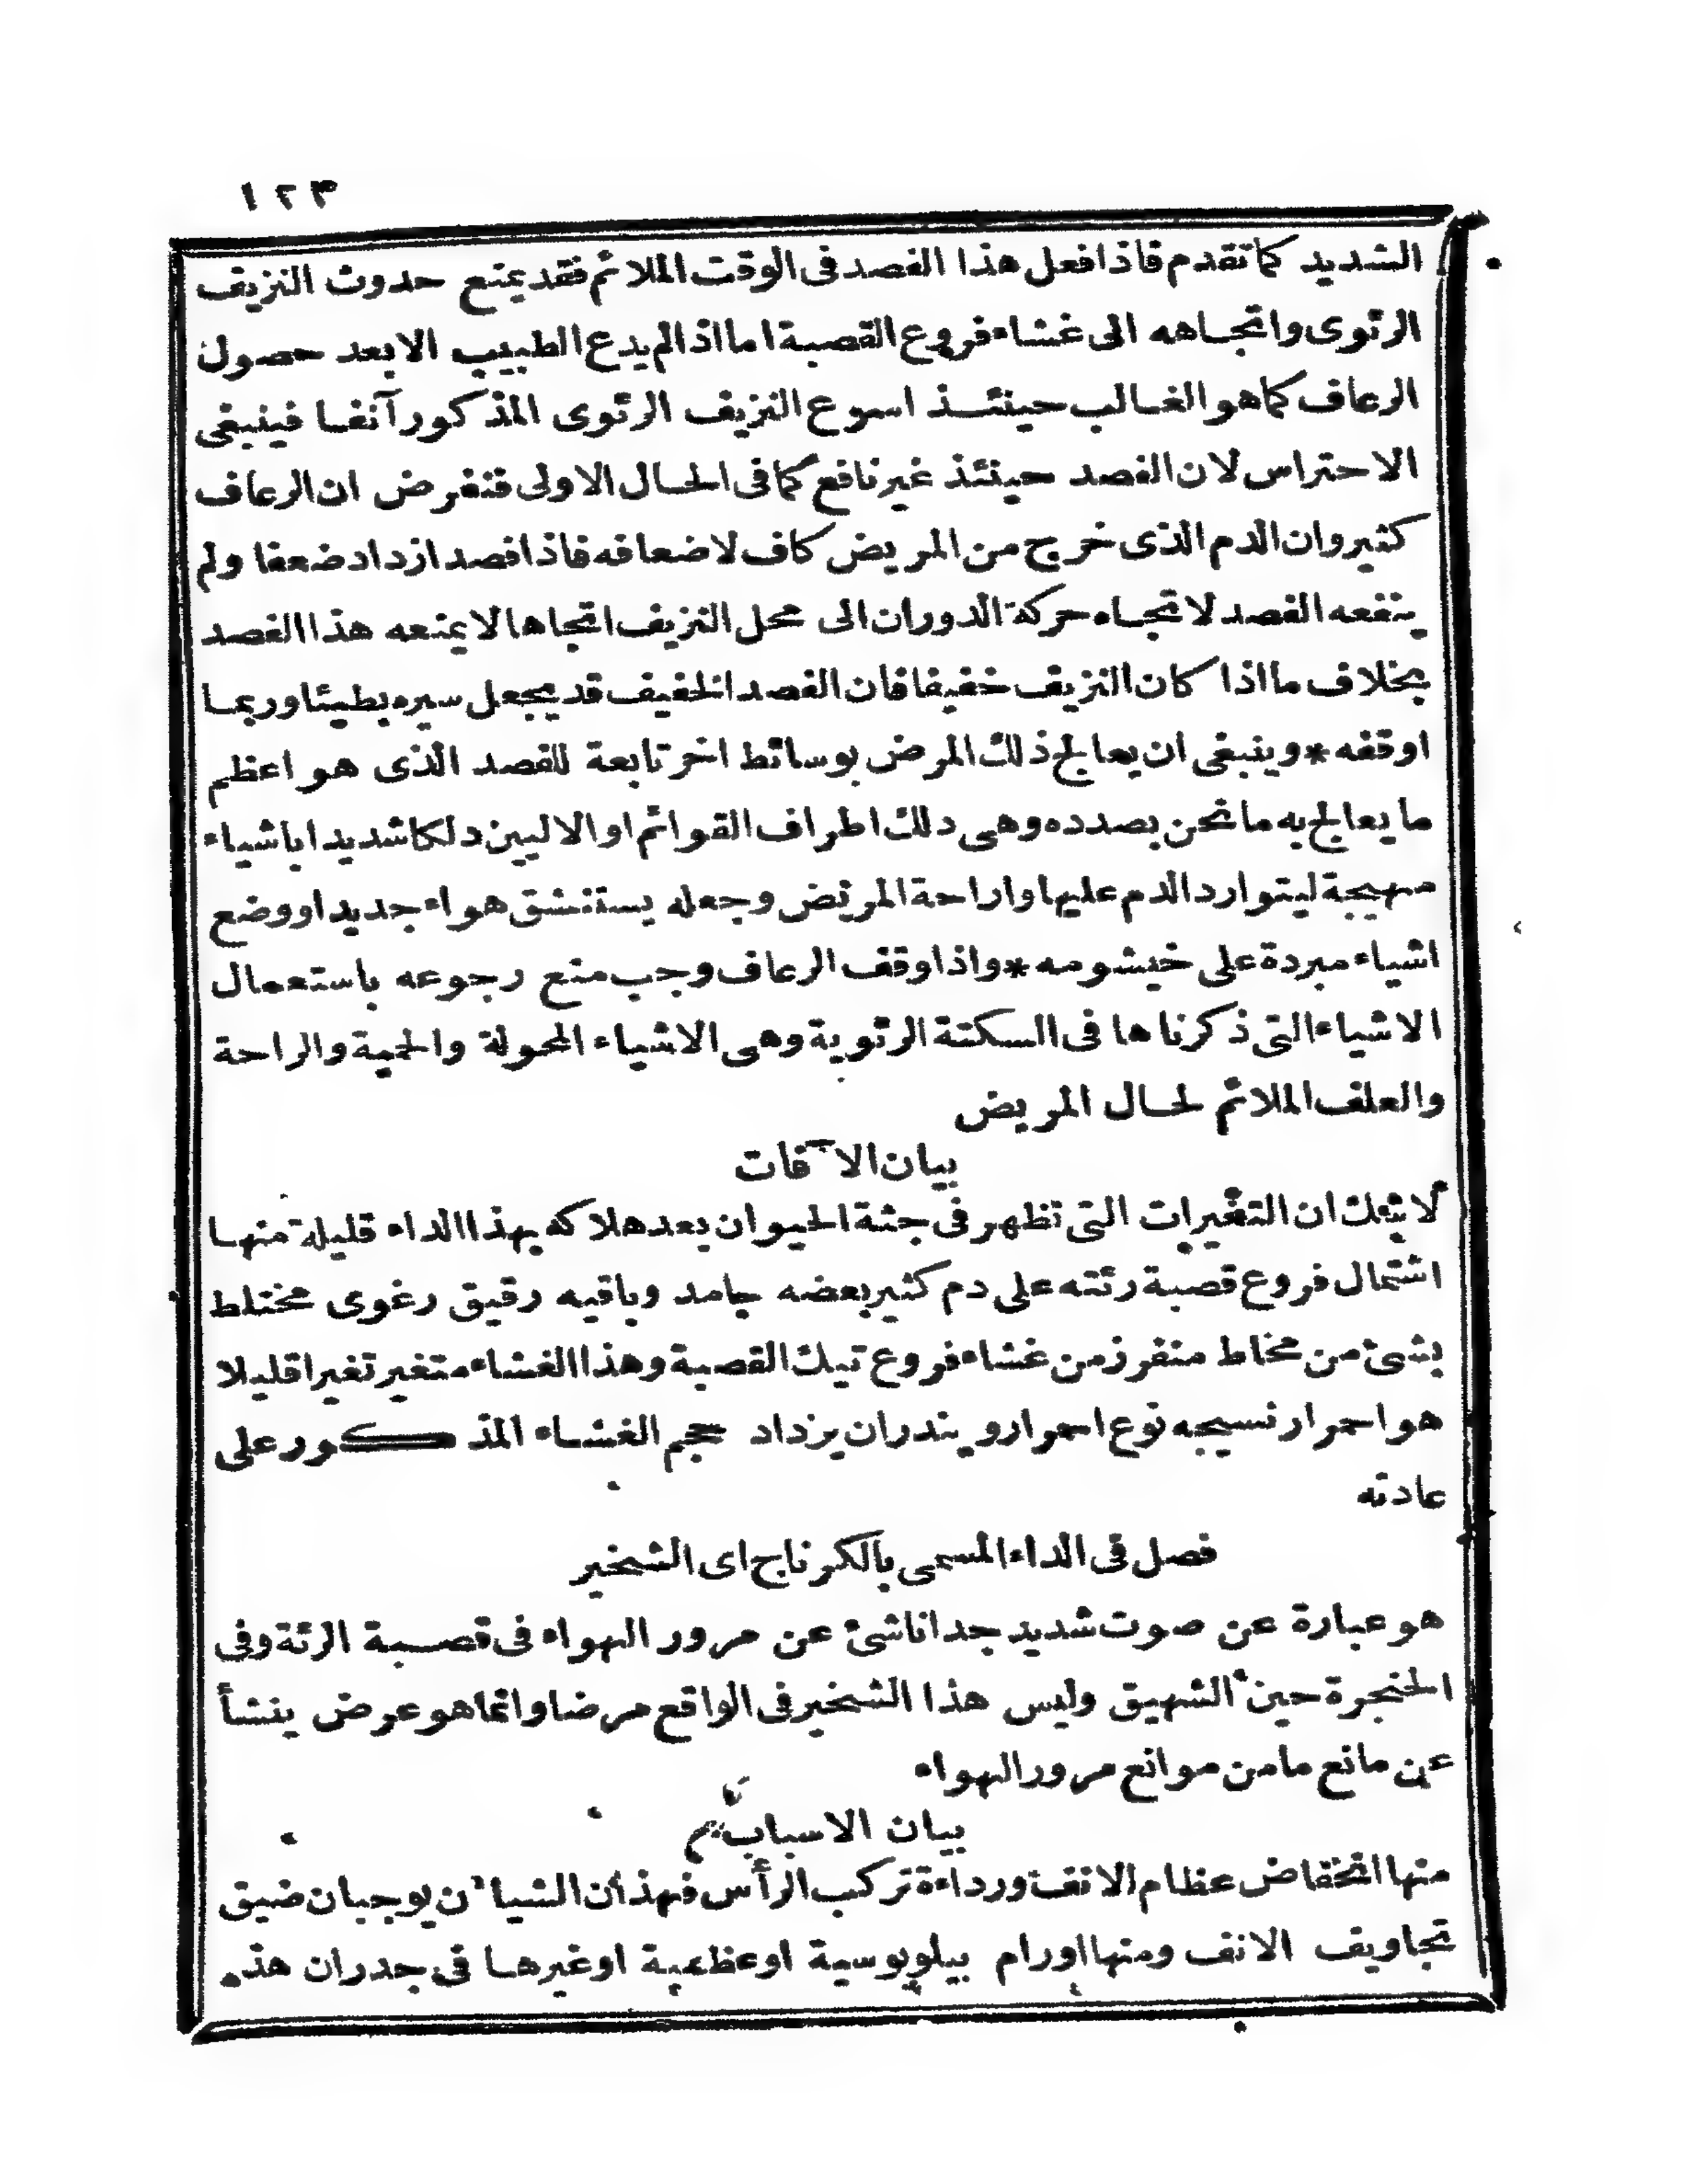 ١٢٣
الشديد كما تقدم فاذا فعل هذا الفصد فى الوقت الملائم فقد يمنع حدوث النزيف
الرئوى واتجاهه الى غشاء فروع القصبة اما اذا لم يدع الطبيب الا بعد حصول
الرعاف كما هو الغالب حينئذ اسرع النزيف الرئوى المذكور آنفا فينبغى
الاحتراس لان الفصد حينئذ غير نافع كما فى الحال الاولى فنفرض ان الرعاف
كثير وان الدم الذى خرج من المريض كاف لاضعافه فاذا فصد ازداد ضعفا ولم
ينفعه الفصد لاتجاه حركة الدوران الى محل النزيف اتجاها لا يمنعه هذا الفصد
بخلاف ما اذا كان النزيف خفيفا فان الفصد الخفيف قد يجعل سيره بطيئا وربما
اوقفه * وينبغى ان يعالج ذلك المرض بوسائط اخر تابعة للفصد الذى هو اعظم
ما يعالج به ما نحن بصدده وهى دلك اطراف القوائم او الاليين دلكا شديدا باشياء
مهيجة ليتوارد الدم عليها واراحة المريض وجعله يستنشق هواء جديدا ووضع
اشياء مبردة على خيشومه * واذا وقف الرعاف وجب منع رجوعه باستعمال
الاشياء التى ذكرناها فى السكتة الرئوية وهى الاشياء المحولة والحمية والراحة
والعلف الملائم لحال المريض
بيان الآفات
لا شك ان التغيرات التى تظهر فى جثة الحيوان بعد هلاكه بهذا الداء قليلة منها
اشتمال فروع قصبة رئته على دم كثير بعضه جامد وباقيه رقيق رغوى مختلط
بشئ من مخاط منفرز من غشاء فروع تيك القصبة وهذا الغشاء متغير تغيرا قليلا
هو احمرار نسيجه نوع احمرار ويندر ان يزداد حجم الغشاء المذكور على
عادته
فصل فى الداء المسمى بالكرناج اى الشخير
هو عبارة عن صوت شديد جدا ناشئ عن مرور الهواء فى قصبة الرئة وفى
الحنجرة حين الشهيق وليس هذا الشخير فى الواقع مرضا وانما هو عرض ينشأ
عن مانع ما من موانع مرور الهواء
بيان الاسباب
منها انخفاض عظام الانف ورداءة تركب الرأس فهذان الشيآن يوجبان ضيق
تجاويف الانف ومنها اورام بيلوبوسية او عظمية او غيرها فى جدران هذه